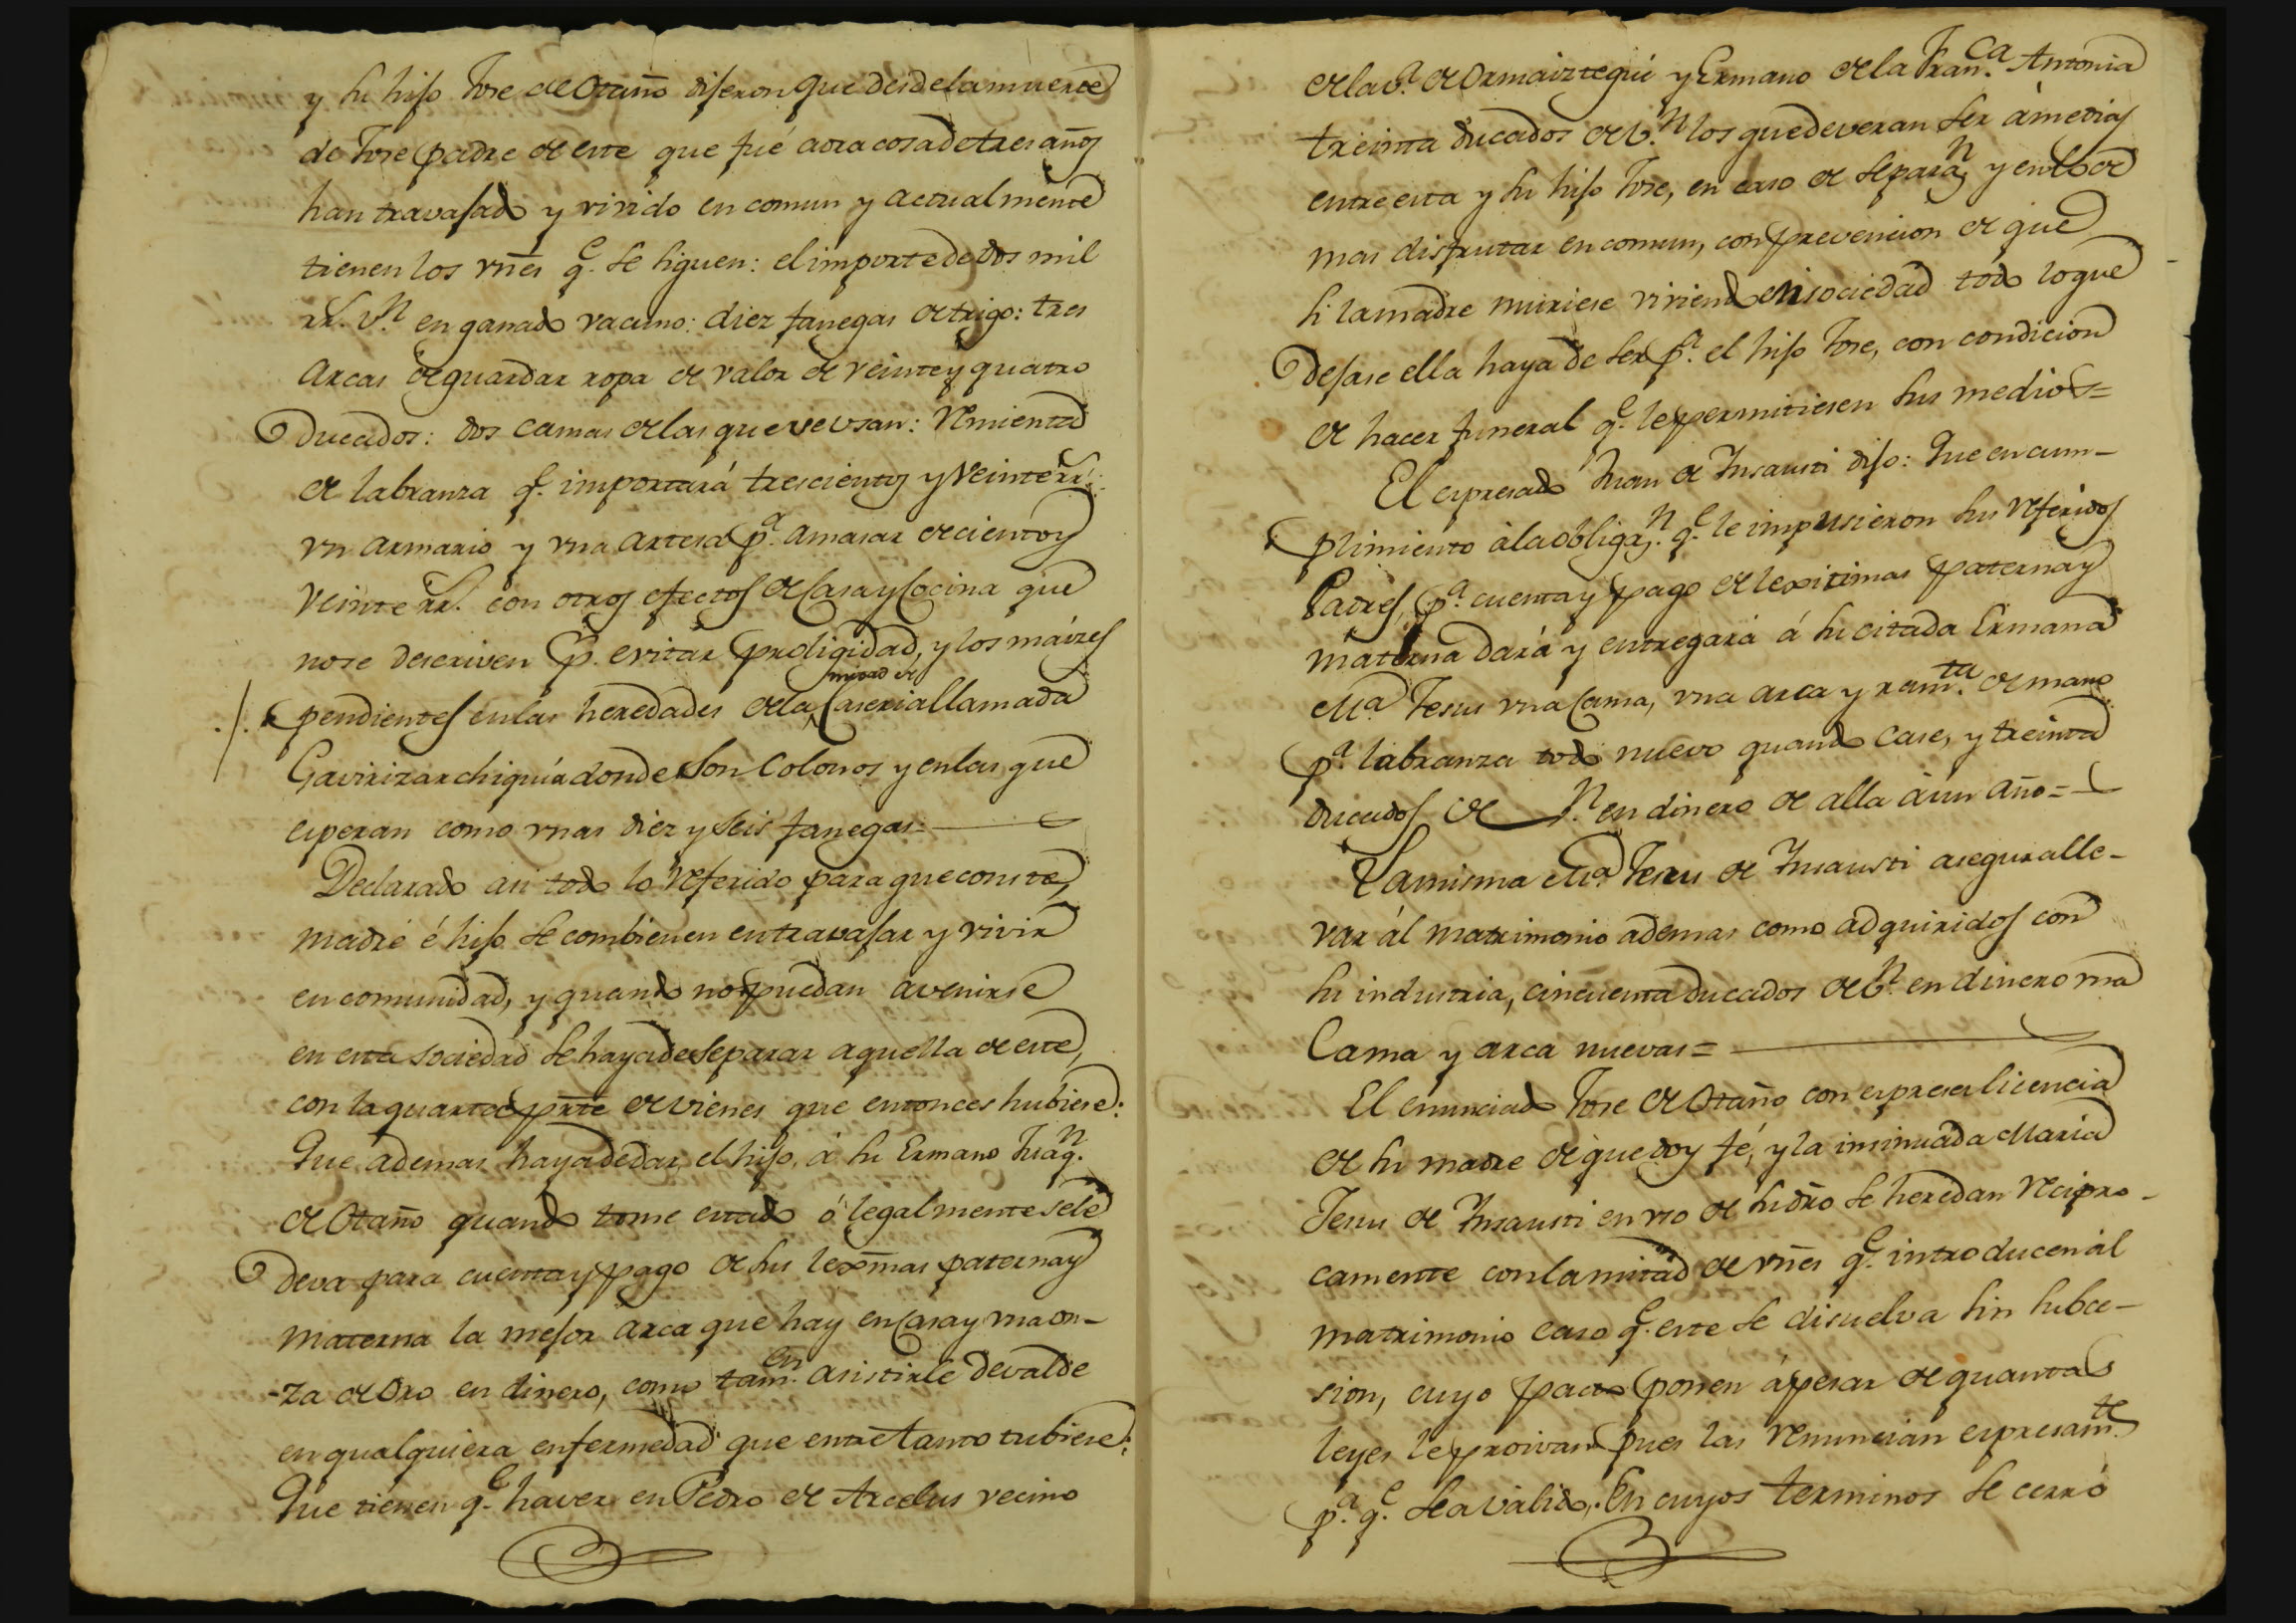 y su hijo Jose de Otaño dijeron que desde la muerte
de Jose padre de este que fué aora cosa de tres años
han travajado y vivido en comun y actualmente
tienen los vñes q.e se siguen: el importe de dos mil
rr.s v.n en ganado vacuno: diez fanegas de trigo: tres
arcas de guardar ropa de valor de veinte y quatro
ducados: dos camas de las que se usan: Remienta
de labranza q.e importará trescientos y veinte rr.s:
vn armario y vna artesa p.a amasar de ciento y
veinte rr.s con otros efectos de Casa y Cocina que
no se descriven p.r evitar proligidad, y los máizes
mitad de
./. pendientes en las heredades de la Caseria llamada
Gavirizarchiquía donde son Colonos y en las que
esperan como vnas diez y seis fanegas=
Declarado asi todo lo referido para que conste,
madre é hijo se combienen en travajar y vivir
en comunidad, y quando no puedan avenirse
en esta sociedad se haya de separar aquella de este,
con la quarta pr̃te de vienes que entonces hubiese:
Que ademas haya de dar el hijo, á su Ermano Juaq.n
de Otaño quando tome estado ó legalmente se le
deva para cuenta y pago de sus lexm̃as paterna y
materna la mejor arca que hay en Casa y vna on-
-za de Oro en dinero, como tam.en asistirle de valde
en qualquiera enfermedad que entre tanto tubiese:
Que tienen q.e haver en Pedro de Arcelus vecino
de la v.a de Ormaiztegui y Ermano de la Fran.ca Antonia
treinta ducados de v.n los que deveran ser á medias
entre esta y su hijo Jose, en caso de separa.n y en lo de
mas disfrutar en comun, con prevencion de que
si la madre muriese viviendo en sociedad todo lo que
dejase ella haya de ser p.a el hijo Jose, con condicion
de hacer funeral q.e le permitiesen sus medios=
El espresado Juan de Insausti dijo: Que en cum-
plimiento á la obligaz.n q.e le impusieron sus referidos
Padres, p.a cuenta y pago de lexitimas paterna y
materna dará y entregará á su citada Ermana
M.a Jesus vna Cama, vna arca y ram.ta de mano
p.a labranza todo nuevo quando case, y treinta
ducados de v.n en dinero de alla á un año=
La misma M.a Jesus de Insausti asegura lle-
var ál matrimonio ademas como adquiridos con
su industria, cincuenta ducados de v.n en dinero vna
Cama y arca nuevas=
El enunciado Jose de Otaño con espresa licencia
de su madre de que doy fé, y la insinuada Maria
Jesus de Insausti en vso de su dr̃o se heredan recipro-
camente con la mitad de vñes q.e introducen ál
matrimonio caso q.e este se disuelva sin subce-
sion, cuyo pacto ponen á pesar de quantas
leyes le proivan pues las renuncian espresam.te
p.a q.e sea valido. En cuyos terminos se cerró